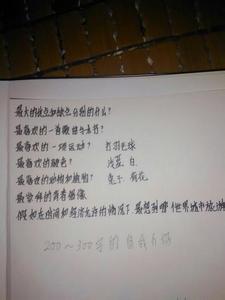 最大的优点和缺点分别是什么?
最喜欢的一首歌曲与书?
最喜欢的一项运动? 打羽毛球
最喜欢的颜色? 浅蓝 白
最喜欢的动物和植物? 兔子 荷花
最崇拜的青春偶像
假如在时间和经济允许的情况下 最想到哪个世界城市旅游
200~300字的自我介绍